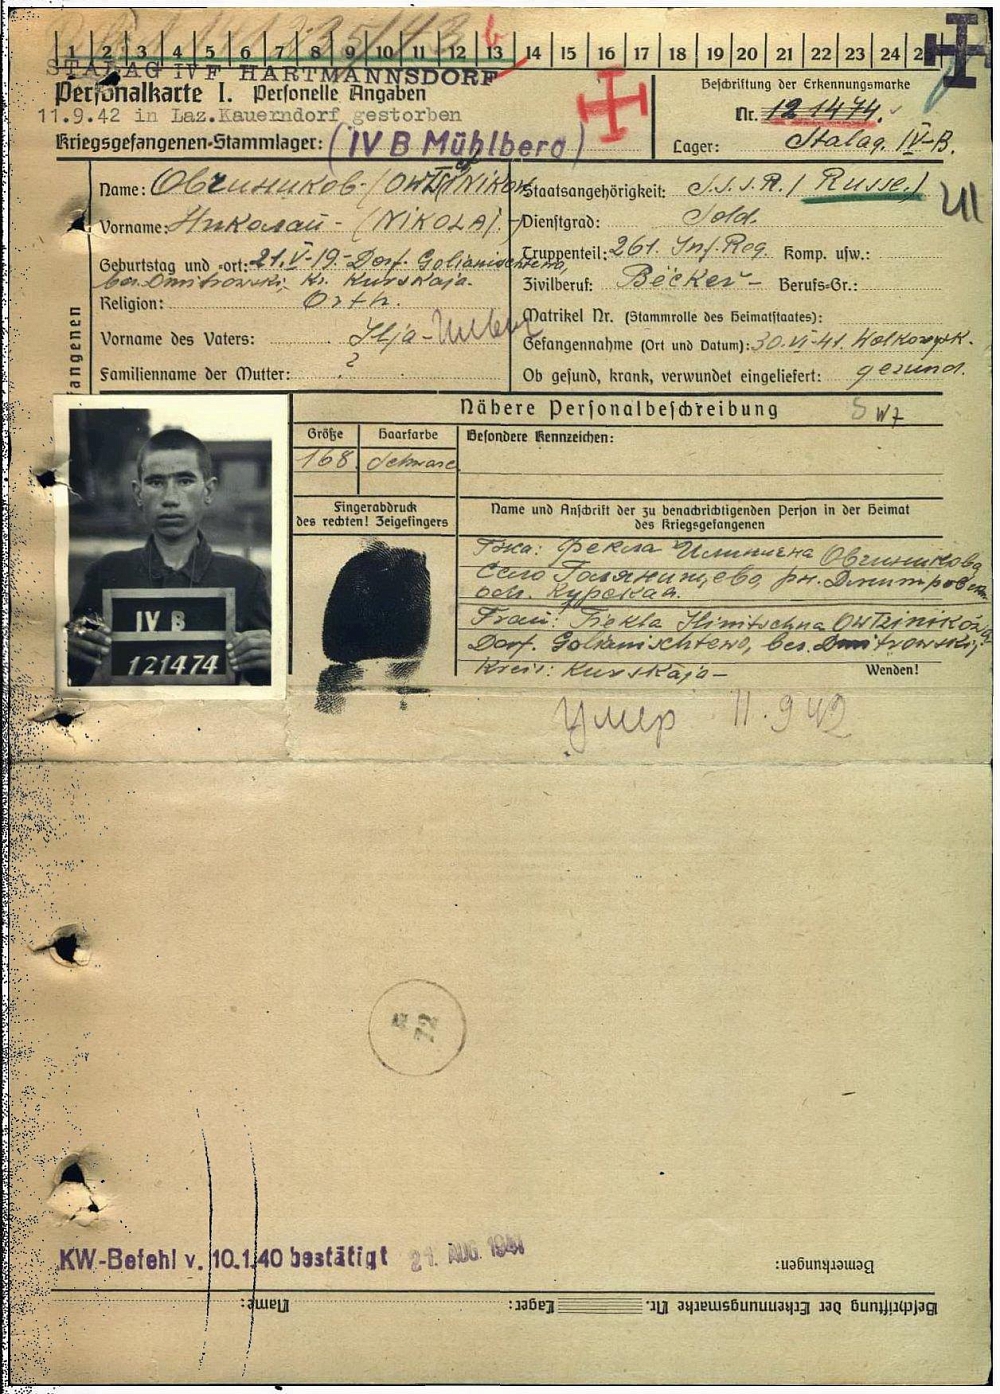 1 2 3 4 5 6 7 8 9 10 11 12 13 14 15 16 17 18 19 20 21 22 23 24
STALAG IV F HARTMANNSDORF
Personalkarte I. Personelle Angaben
11.9.42 in Laz.Kauerndorf gestorben
Kriegsgefangenen-Stammlager: (IV B Mühlberg)
Beschriftung der Erkennungsmarke
Nr. 121474.
Lager: Stalag. IV-B.
Name:
Vorname: Николай - (NIKOLAJ.)
Geburtstag und -ort: 21.V-19. Dorf.
bez. Dmitrowski, Kr. Kurskaja.
Religion: Orth.
Vorname des Vaters: Ilja-
Familienname der Mutter: ?
Staatsangehörigkeit: S.S.S.R. (Russe.)
Dienstgrad: Sold.
Truppenteil: 261. Inf. Reg. Komp. usw.:
Zivilberuf: Bäcker - Berufs-Gr.:
Matrikel Nr. (Stammrolle des Heimatstaates):
Gefangennahme (Ort und Datum): 30.VI-41.
Ob gesund, krank, verwundet eingeliefert: gesund.
angenen
Nähere Personalbeschreibung
Größe Haarfarbe Besondere Kennzeichen:
168 schwarz
Fingerabdruck
des rechten! Zeigefingers
Name und Anschrift der zu benachrichtigenden Person in der Heimat
des Kriegsgefangenen
Фекла Овчиникова
Село рн. Дмитровский
обл. Курская.
Frau: Fekla OWTSINIKOWA
Dorf. Golianischtewo, bez. Dmitrowski,
Kreis: Kurskaja-
Wenden!
IV B
121474
умер 11.9 42
72
KW-Befehl v. 10.1.40 bestätigt 21. AUG. 1941
Bemerkungen:
Beschriftung der Erkennungsmarke Nr. Lager: Name: